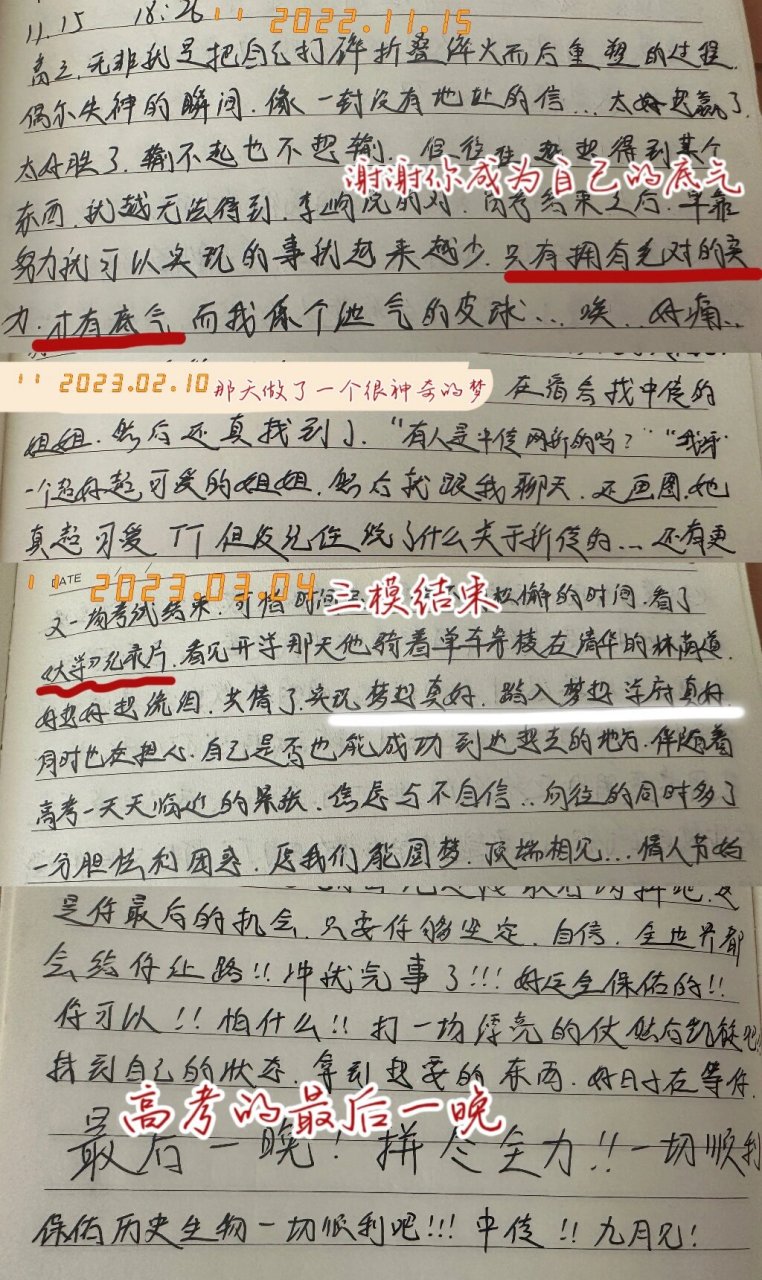 11.15 18:26 '' 2022.11.15
高三,无非就是把自己打碎折叠淬火而后重塑的过程.
偶尔失神的瞬间.像一封没有地址的信...太好想赢了.
太好胜了.输不起也不想输.但往往越想得到某个
谢谢你成为自己的底气
东西,就越无法得到.李响说的对.高考结束之后.单靠
努力就可以实现的事就越来越少.只有拥有绝对的实
力.才有底气 而我像个泄气的皮球...唉..好痛..
'' 2023.02.10 那天做了一个很神奇的梦 在宿舍找中传的
姐姐.然后还真找到了."有人是中传网新的吗?"
一个超好超可爱的姐姐.然后就跟我聊天.还画图.她
真超可爱TT但仅记住说了什么关于折传的...还有更
DATE
'' 2023.03.04 三模结束
又一场考试结束.可惜时间 的时间.看了
《大学》纪录片.看见开学那天他骑着单车穿梭在清华的林荫道.
好想好想流泪.共情了.实现梦想真好.踏入梦想学府真好.
同时也在担心.自己是否也能成功到达想去的地方.伴随着
高考一天天临近的紧张.焦虑与不自信..向往的同时多了
一分胆怯和困惑.愿我们能圆梦.顶端相见...情人节的
是你最后的机会.只要你够坚定.自信.全世界都
会给你让路!!冲就完事了!!!好运全保佑的!!
你可以!!怕什么!!打一场漂亮的仗然后凯旋吧!!
找到自己的状态.拿到想要的东西.好日子在等你.
高考的最后一晚
最后一晚!拼尽全力!!一切顺利
保佑历史生物一切顺利吧!!!中传!!九月见!